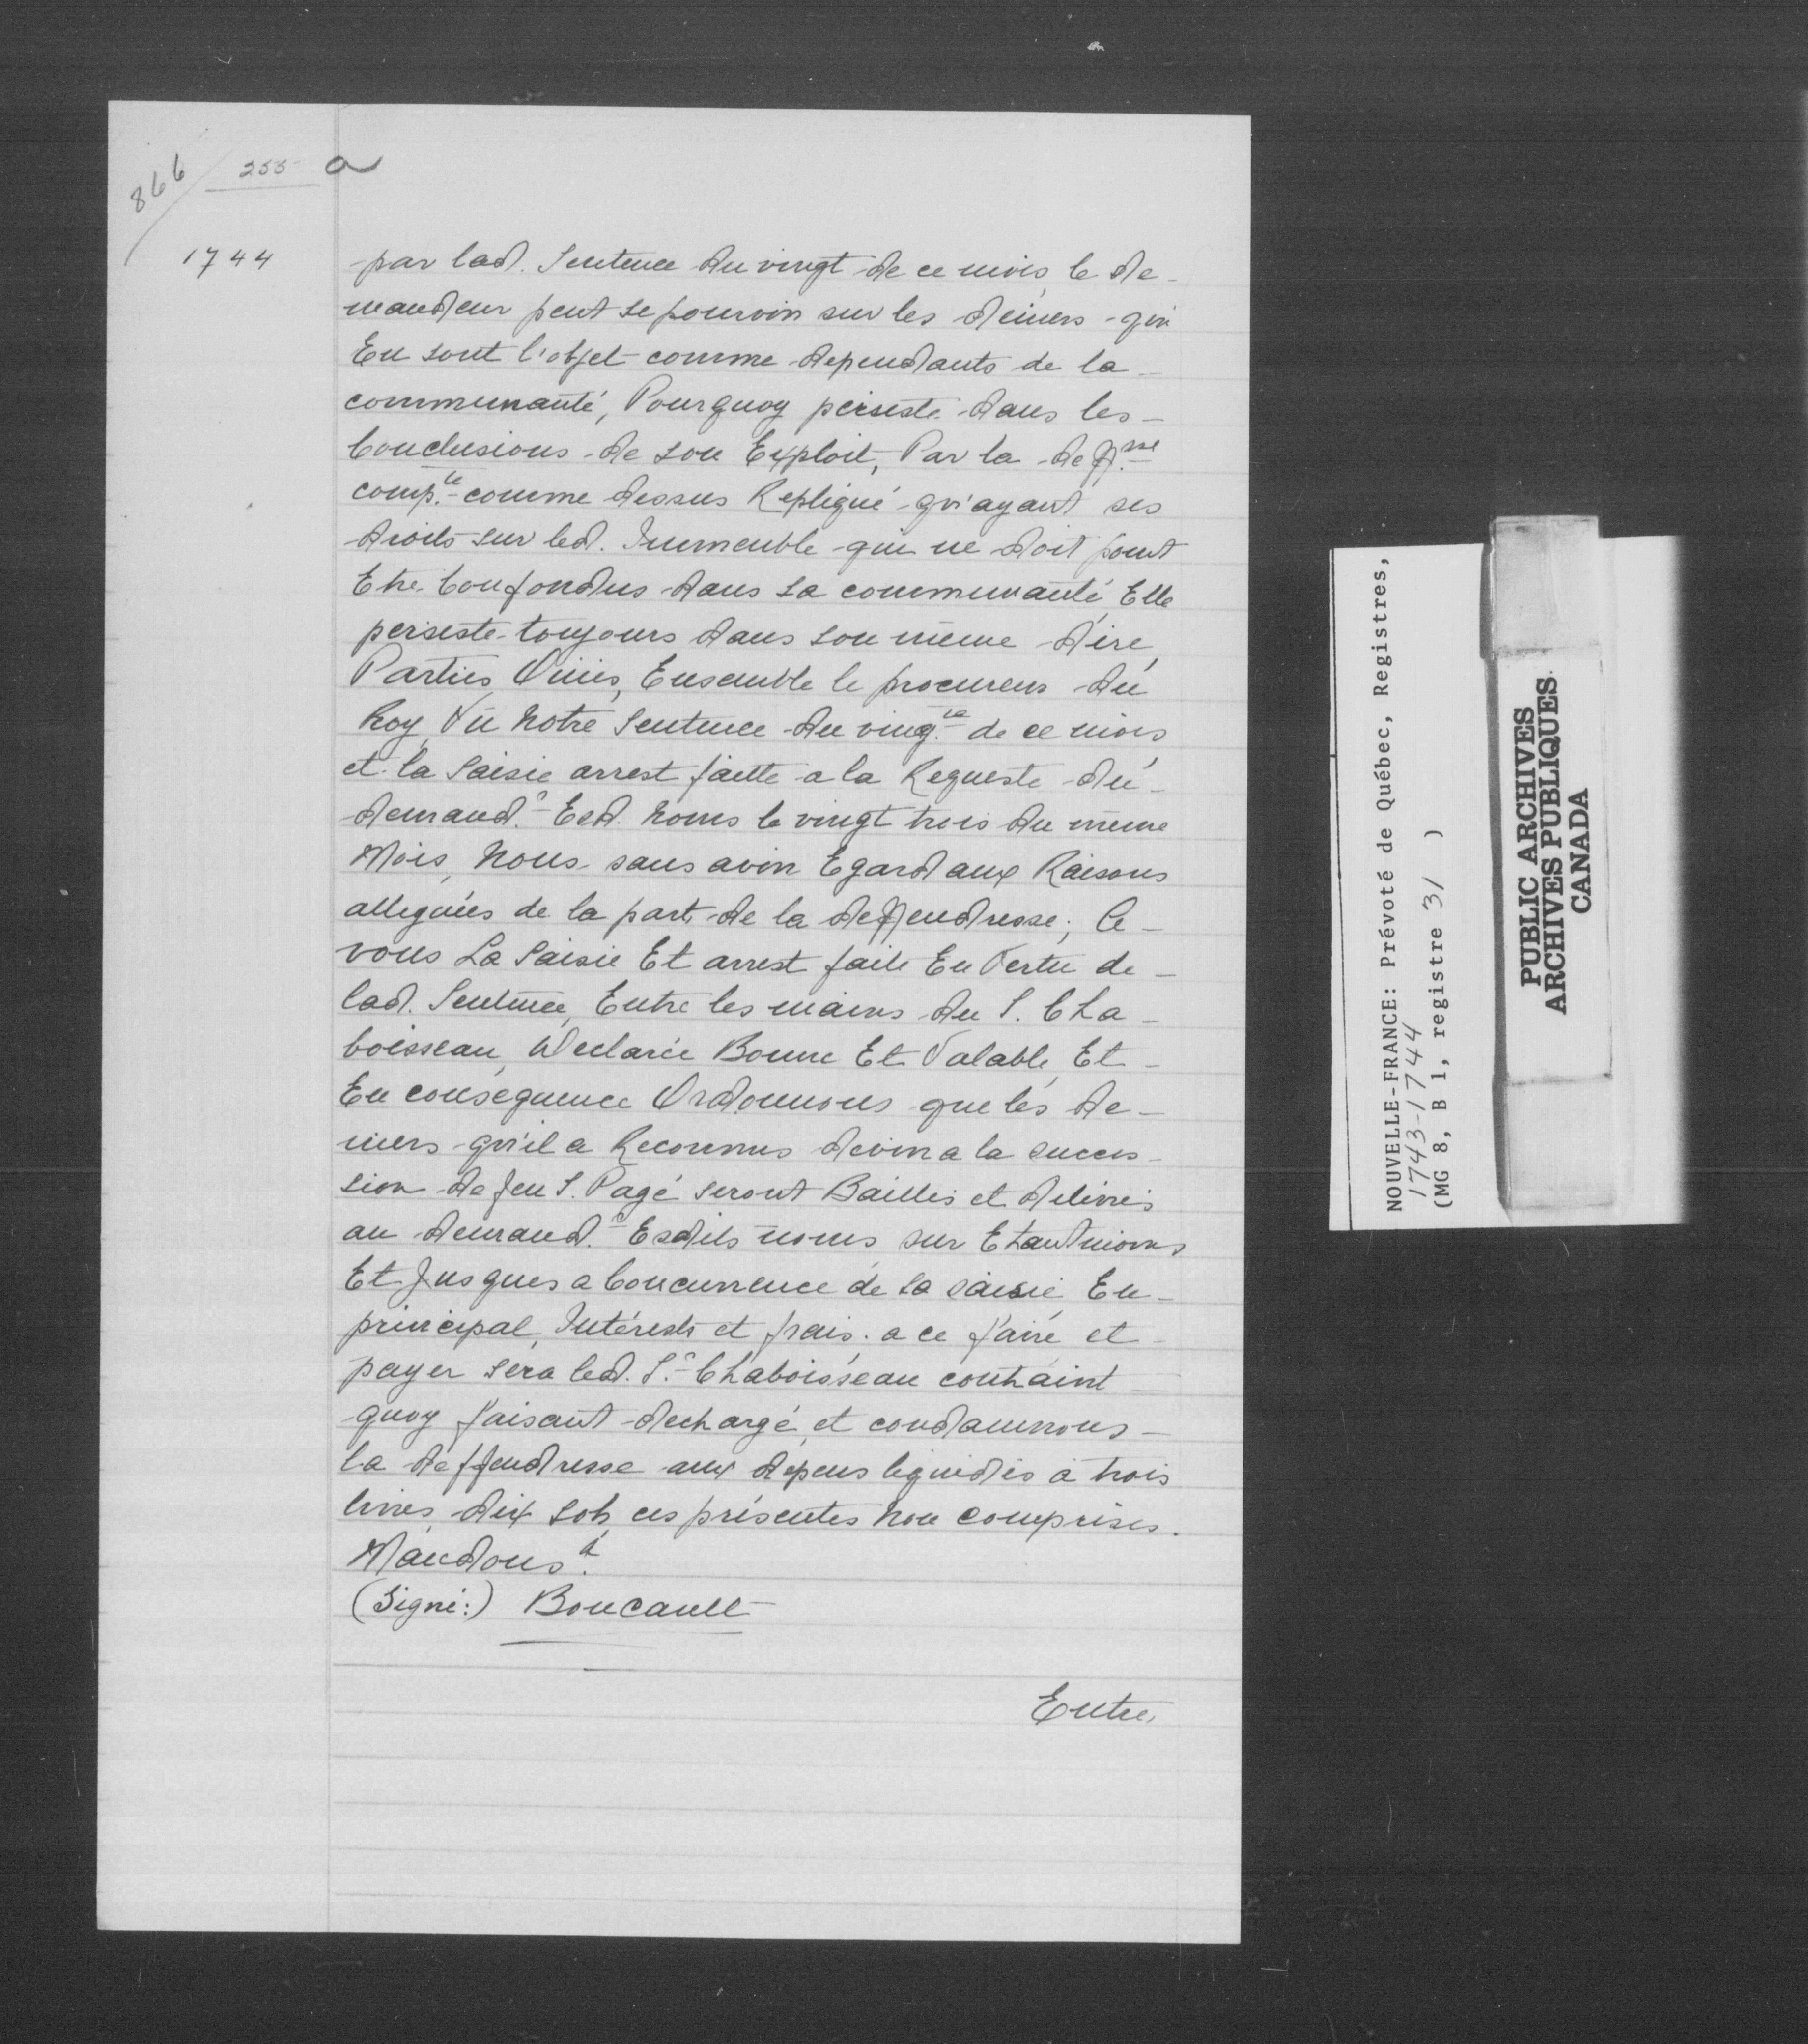 866
255 a
1744
par lad. Sentence du vingt de ce mois, le de-
mandeur peut se pourvoir sur les deniers qui
En sont l'objet comme dependants de la
communauté, Pourquoy persiste dans les
Conclusions de son Exploit, Par la deff.sse
comp.te comme dessus Repliqué qu'ayant ses
droits sur led. Immeuble qui ne doit point
Etre Confondus dans sa communauté Elle
persiste toujours dans son même dire,
Parties Ouies, Ensemble le procureur du
Roy, Vu Notre Sentence du ving.te de ce mois
et la Saisie arrest faitte a la Requeste du
demand.r Esd. Noms le vingt trois du même
Mois, Nous sans avoir Egard aux Raisons
alleguées de la part de la deffendresse, A-
vons La Saisie Et arrest faite En Vertu de
lad. Sentence, Entre les mains du S. Cha-
boisseau, Declarée Bonne Et Valable, Et
En consequence Ordonnons que les de-
niers qu'il a Reconnus devoir a la succes-
sion de feu S. Pagé seront Baillés et delivrés
au demand.r Esdits noms sur Etant moins
Et Jusques a Concurrence de la saisie En
principal, Intérests et frais. a ce faire et
payer sera led. S.r Chaboisseau contraint
quoy faisant dechargé, et condamnons
la deffendresse aux depens liquidés à trois
livres dix sols, ces présentes Non comprises.
Mandons &.
(Signé:) Boucault
Entre
NOUVELLE-FRANCE: Prévoté de Québec, Registres,
1743-1744
(MG 8, B 1, registre 31 )
PUBLIC ARCHIVES
ARCHIVES PUBLIQUES
CANADA